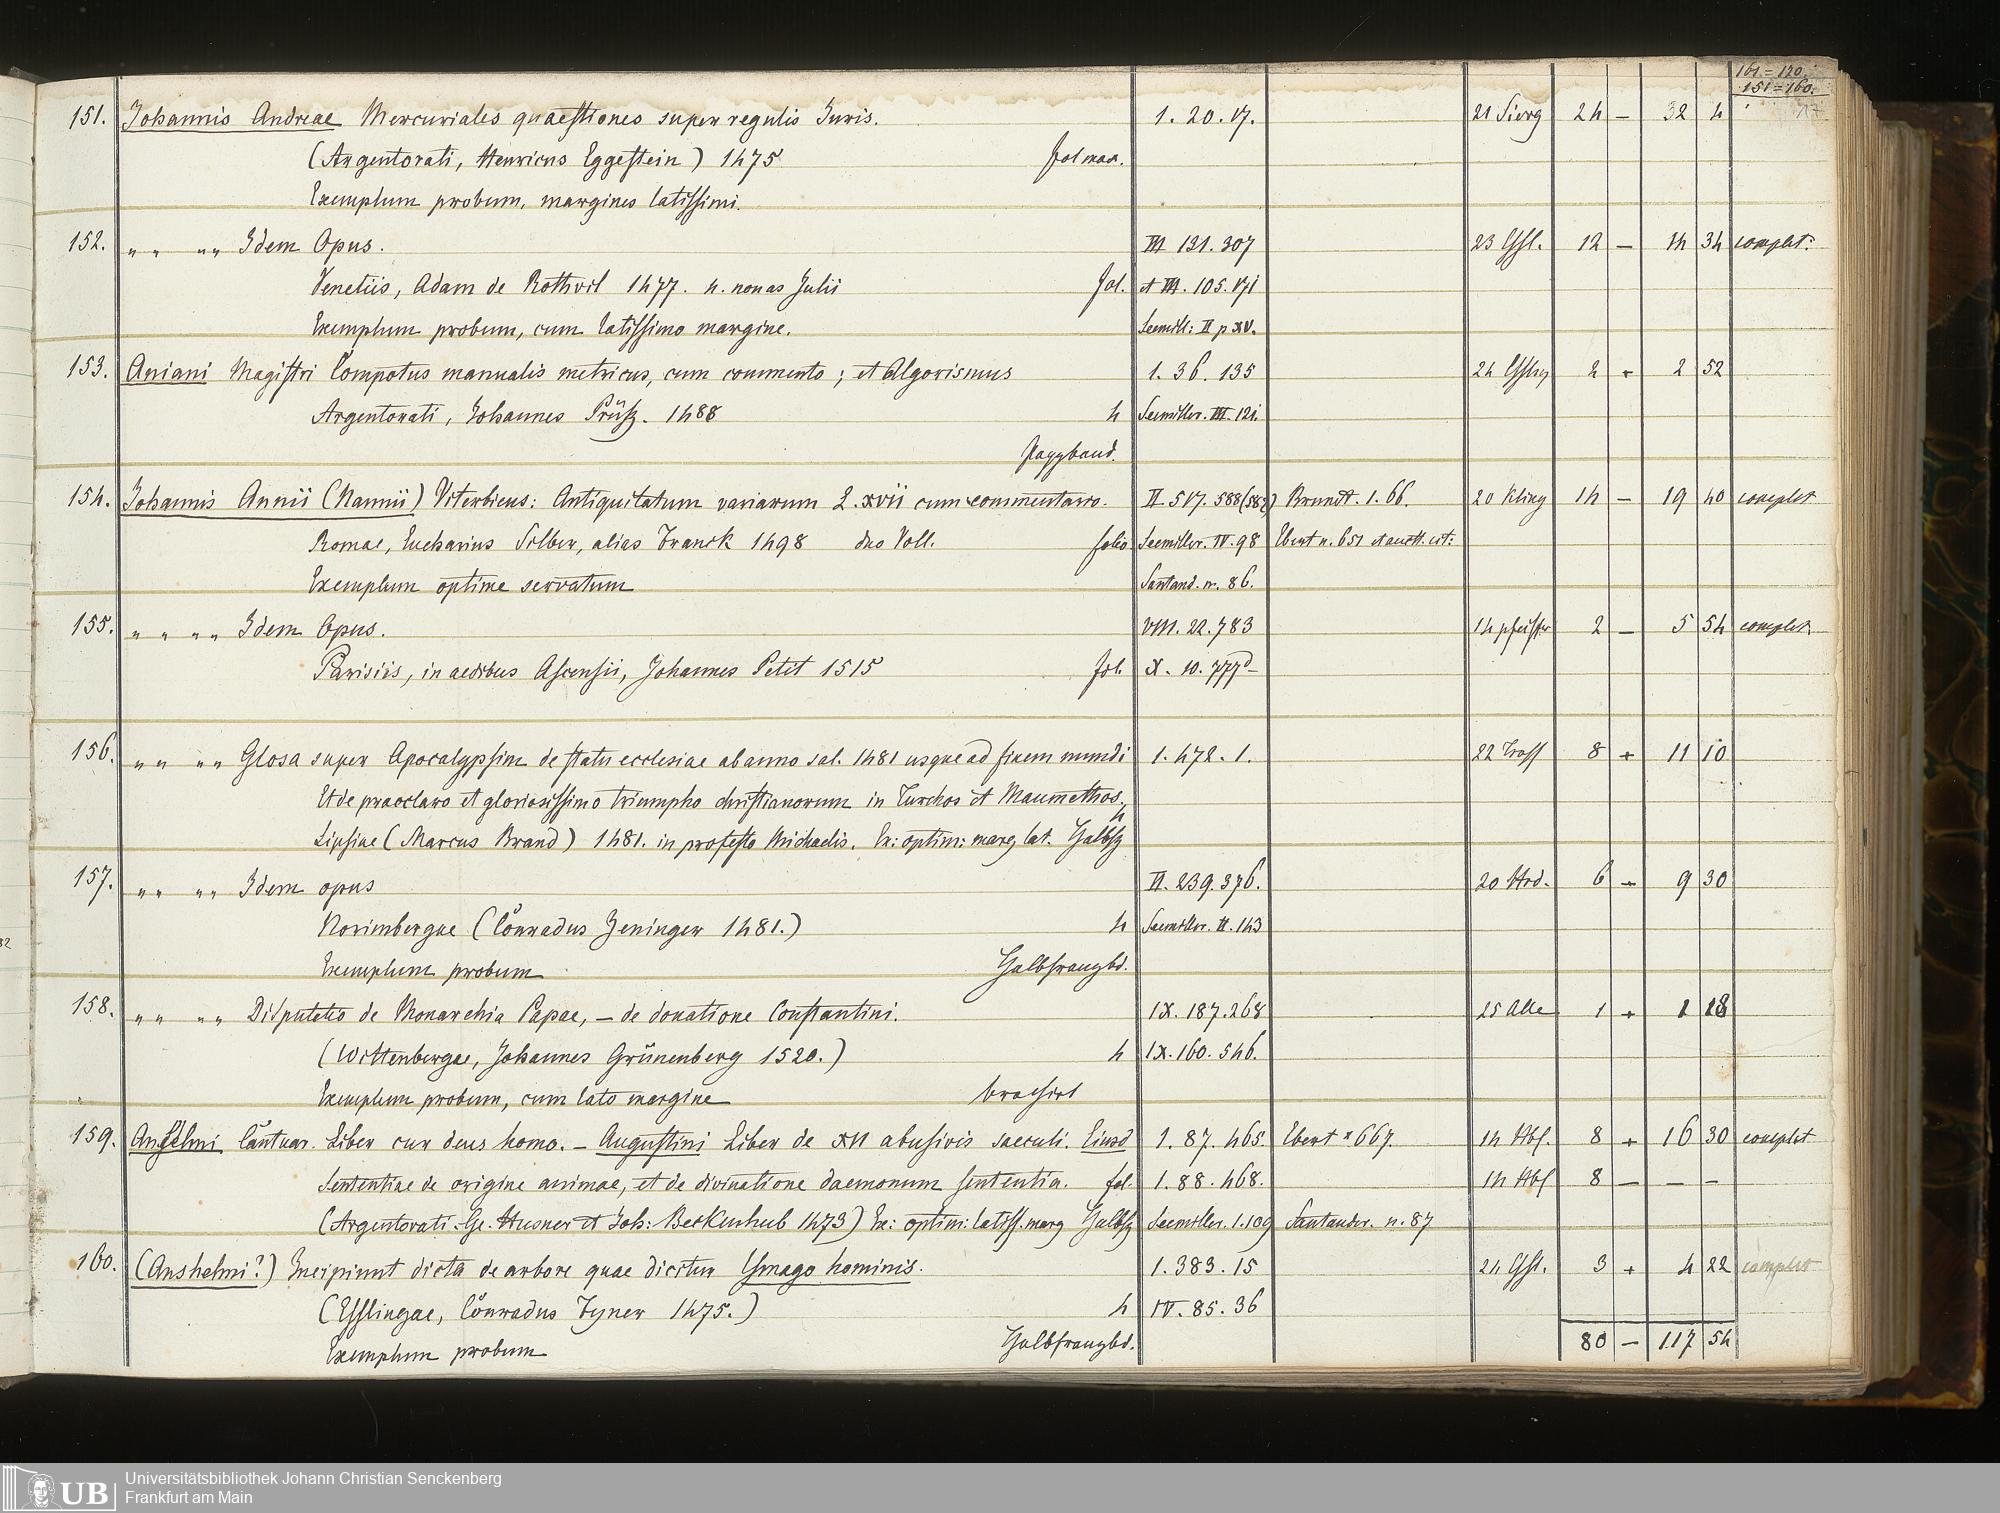 161 = 170.
151 = 160.
151. Johannis Andreae Mercuriales quaestiones super regulis Juris. 1. 20. 17. 21 Sierg 24 – 32 4
(Argentorati, Henricus Eggestein) 1475 fol max.
Exemplum probum, margines latissimi.
152. „ „ „ „ Idem Opus. III 131. 307 23 Essl. 12 – 14 34 complet:
Venetiis, Adam de Rothvil 1477. 4. nonas Julii fol. et VII. 105. 171
Exemplum probum, cum latissimo margine. Seemill: II p XV.
153. Aniani Magistri Compotus manualis metricus, cum commento; et Algorismus 1. 36. 135 24 2 + 2 52
Argentorati, Johannes Prüß. 1488 4 Seemiller. III. 121.
Pappband.
154. Johannis Annii (Nannii) Viterbiens: Antiquitatum variarum L. xvii cum commentario. II. 517. 588 (587) Brunet. 1. 66. 20 Kling 14 – 19 40 complet
Romae, Eucharius Silber, alias Franck 1498 duo Voll. folio Seemiller. IV. 98 Ebert n. 651 et auctt. cit:
Exemplum optime servatum Santand. n. 86.
155. „ „ „ „ Idem Opus. VIII. 22. 783 14 pfeiffer 2 – 5 54 complet.
Parisiis, in aedibus Ascensii, Johannes Petit 1515 fol. X. 10. 777 –
156. „ „ „ „ Glosa super Apocalypsim de statu ecclesiae ab anno sal. 1481 usque ad finem mundi 1. 472. 1. 22 Tross 8 + 11 10
Et de praeclaro et gloriosissimo triumpho christianorum in Turchos et Maumethos, 4
Lipsiae (Marcus Brand) 1481. in profesto Michaelis. Ex: optim: marg lat. Halbfz
157. „ „ „ „ Idem opus II. 239. 376. 20 Hrd. 6 – 9 30
Norimbergae (Conradus Zeninger 1481.) 4 Seemiller. II. 143
Exemplum probum Halbfranzbd.
158. „ „ „ „ Disputatio de Monarchia Papae, – de donatione Constantini. IX. 187. 268 25 Alle 1 + 1 18
(Wittenbergae, Johannes Grünenberg 1520.) 4 IX. 160. 546.
Exemplum probum, cum lato margine brochirt
159. Anselmi Cantuar. Liber cur deus homo. – Augustini Liber de XII abusivis saeculi. Eiusd 1. 87. 465. Ebert n 667. 14 Hbf. 8 + 16 30 complet
Sententiae de origine animae, et de divinatione daemonum sententia. fol. 1. 88. 468. 14 Hbf 8 – – –
(Argentorati. Ge. Husner et Joh: Beckenhub 1473) Ex: optim: latiss. marg Halbfz Seemiller. 1. 109 Santander. n. 87
160. (Anshelmi?) Incipiunt dicta de arbore quae dicitur Ymago hominis. 1. 383. 15 24 Essl. 3 + 4 22 complet
(Esslingae, Conradus Fyner 1475.) 4 IV. 85. 36
Exemplum probum Halbfranzbd. 80 – 117 54
UB Universitätsbibliothek Johann Christian Senckenberg
Frankfurt am Main